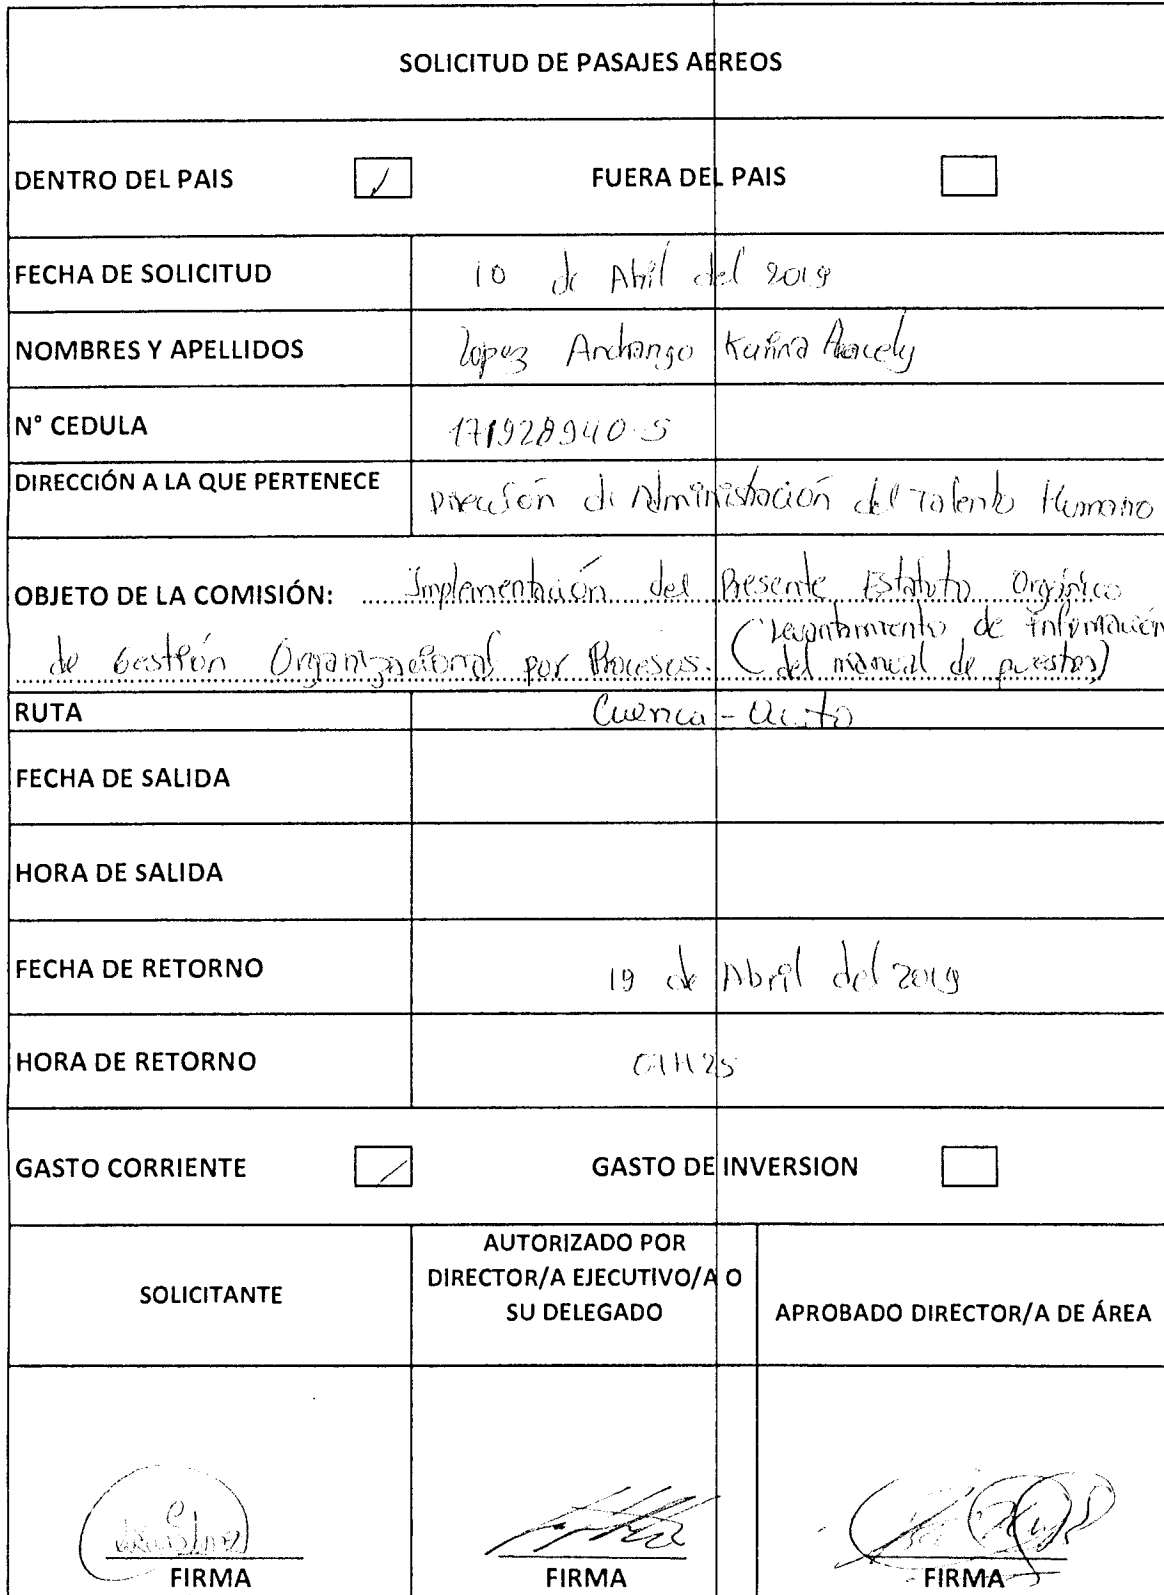 SOLICITUD DE PASAJES AEREOS
DENTRO DEL PAIS FUERA DEL PAIS
FECHA DE SOLICITUD 10 de Abril del 2019
NOMBRES Y APELLIDOS Lopez Andrango Karina Aracely
N° CEDULA 171928940-5
DIRECCIÓN A LA QUE PERTENECE Dirección de Administración del Talento Humano
OBJETO DE LA COMISIÓN: Implementación del Presente Estatuto Orgánico
de Gestión Organizacional por Procesos. (levantamiento de información
del manual de puestos)
RUTA Cuenca - Quito
FECHA DE SALIDA
HORA DE SALIDA
FECHA DE RETORNO 19 de Abril del 2019
HORA DE RETORNO
GASTO CORRIENTE GASTO DE INVERSION
SOLICITANTE
AUTORIZADO POR
DIRECTOR/A EJECUTIVO/A O
SU DELEGADO
APROBADO DIRECTOR/A DE ÁREA
FIRMA FIRMA FIRMA